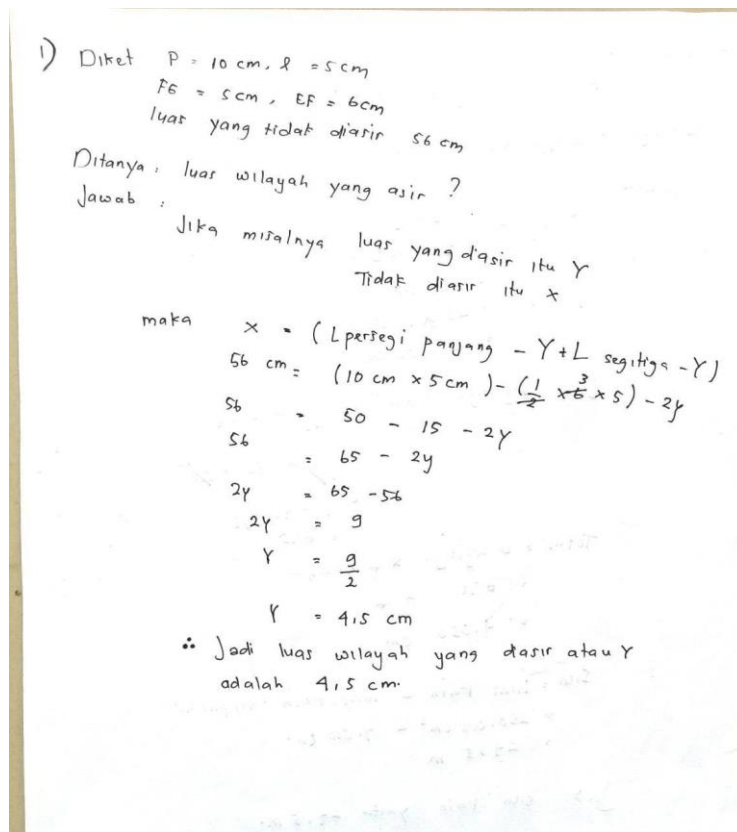 1) Diket P = 10 cm, l = 5 cm
FG = 5 cm, EF = 6 cm
luas yang tidak diasir 56 cm
Ditanya : luas wilayah yang asir ?
Jawab :
Jika misalnya luas yang d'asir itu Y
Tidak diasir itu x
maka x = (L persegi panjang - Y + L segitiga - Y)
56 cm = (10 cm x 5 cm) - (1/2 x 6 3 x 5) - 2y
56 = 50 - 15 - 2Y
56 = 65 - 2y
2y = 65 - 56
2Y = 9
Y = 9/2
Y = 4,5 cm
∴ Jadi luas wilayah yang diasir atau Y
adalah 4,5 cm.